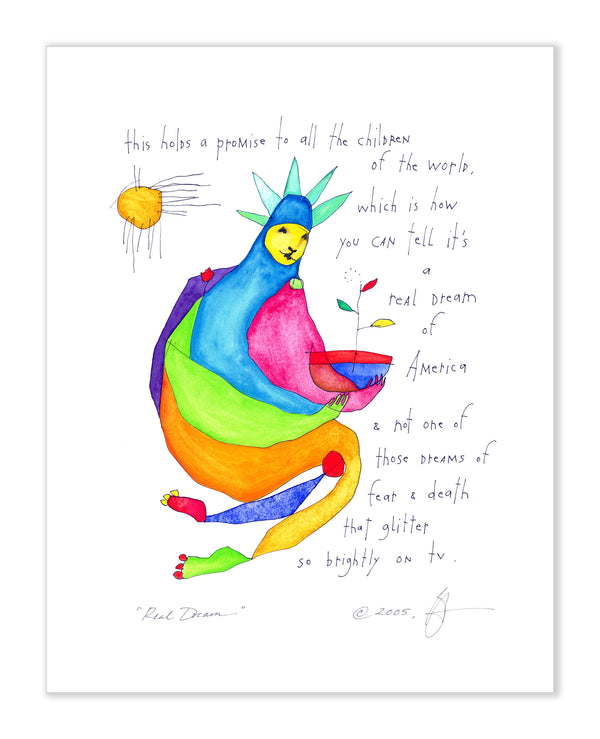 this holds a promise to all the children
of the world,
which is how
you can tell it's
a
real dream
of
America
& not one of
those dreams of
fear & death
that glitter
so brightly on tv.
"Real Dream"
© 2005.